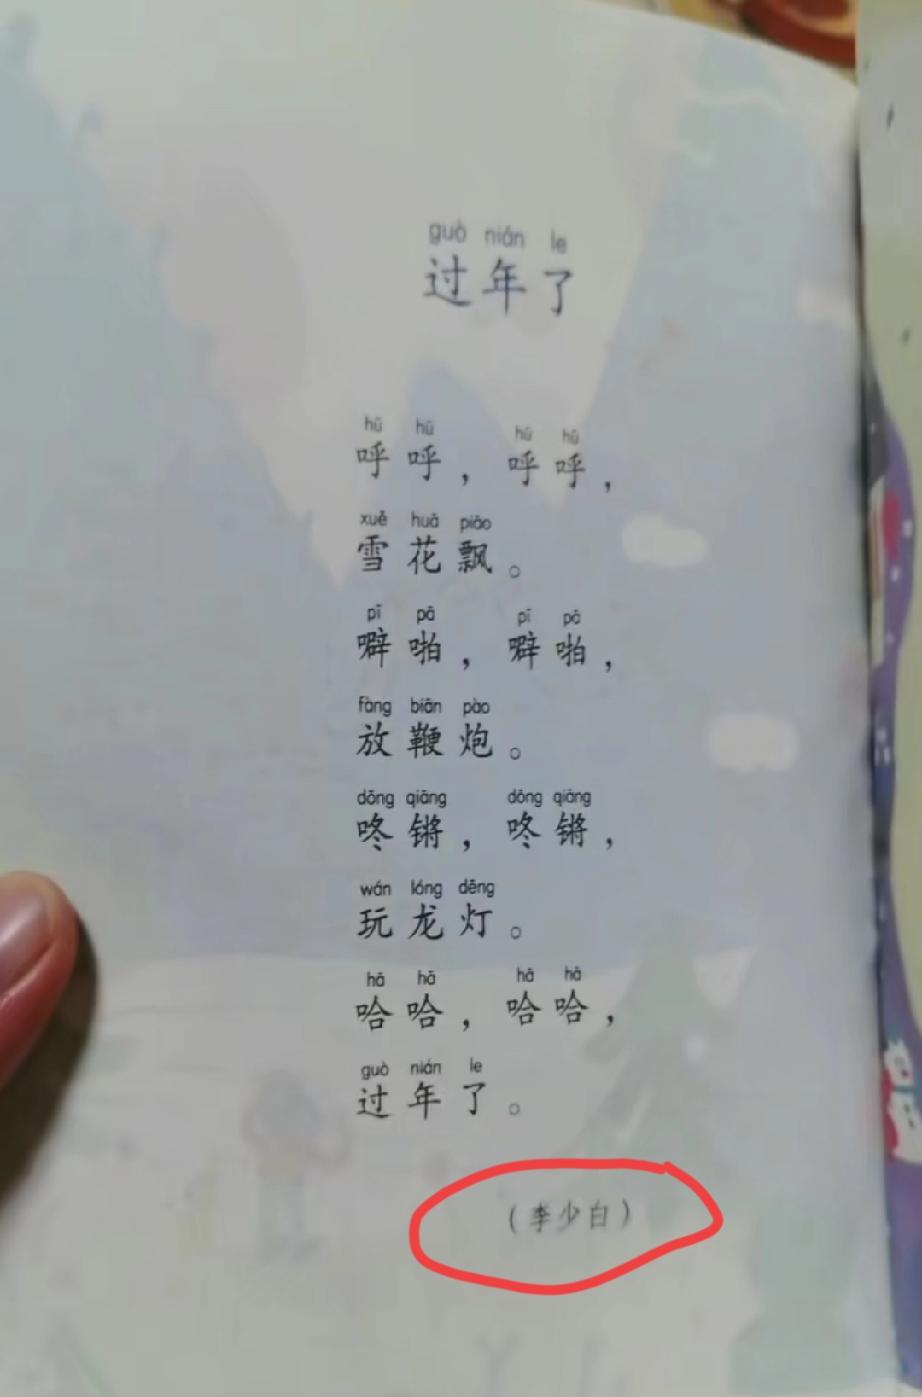 guò nián le
过年了
hū hū hū hū
呼呼，呼呼，
xuě huā piāo
雪花飘。
pī pā pī pā
噼啪，噼啪，
fàng biān pào
放鞭炮。
dōng qiāng dōng qiāng
咚锵，咚锵，
wán lóng dēng
玩龙灯。
hā hā hā hā
哈哈，哈哈，
guò nián le
过年了。
（李少白）